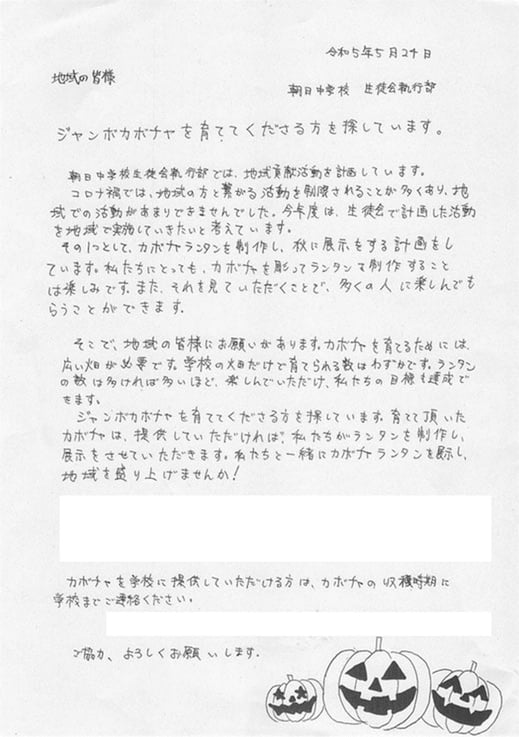 令和5年5月24日
地域の皆様
朝日中学校　生徒会執行部
ジャンボカボチャを育ててくださる方を探しています。
朝日中学校生徒会執行部では、地域貢献活動を計画しています。
コロナ禍では、地域の方と繋がる活動を制限されることが多くあり、地
域での活動があまりできませんでした。今年度は、生徒会で計画した活動
を地域で実施していきたいと考えています。
その1つとして、カボチャランタンを制作し、秋に展示をする計画をし
ています。私たちにとっても、カボチャを彫ってランタンを制作すること
は楽しみです。また、それを見ていただくことで、多くの人に楽しんでも
らうことができます。
そこで、地域の皆様にお願いがあります。カボチャを育てるためには、
広い畑が必要です。学校の畑だけで育てられる数はわずかです。ランタン
の数は多ければ多いほど、楽しんでいただけ、私たちの目標も達成で
きます。
ジャンボカボチャを育ててくださる方を探しています。育てて頂いた
カボチャは、提供していただければ、私たちがランタンを制作し、
展示をさせていただきます。私たちと一緒にカボチャランタンを展示し、
地域を盛り上げませんか！
カボチャを学校に提供していただける方は、カボチャの収穫時期に
学校までご連絡ください。
ご協力、よろしくお願いします。